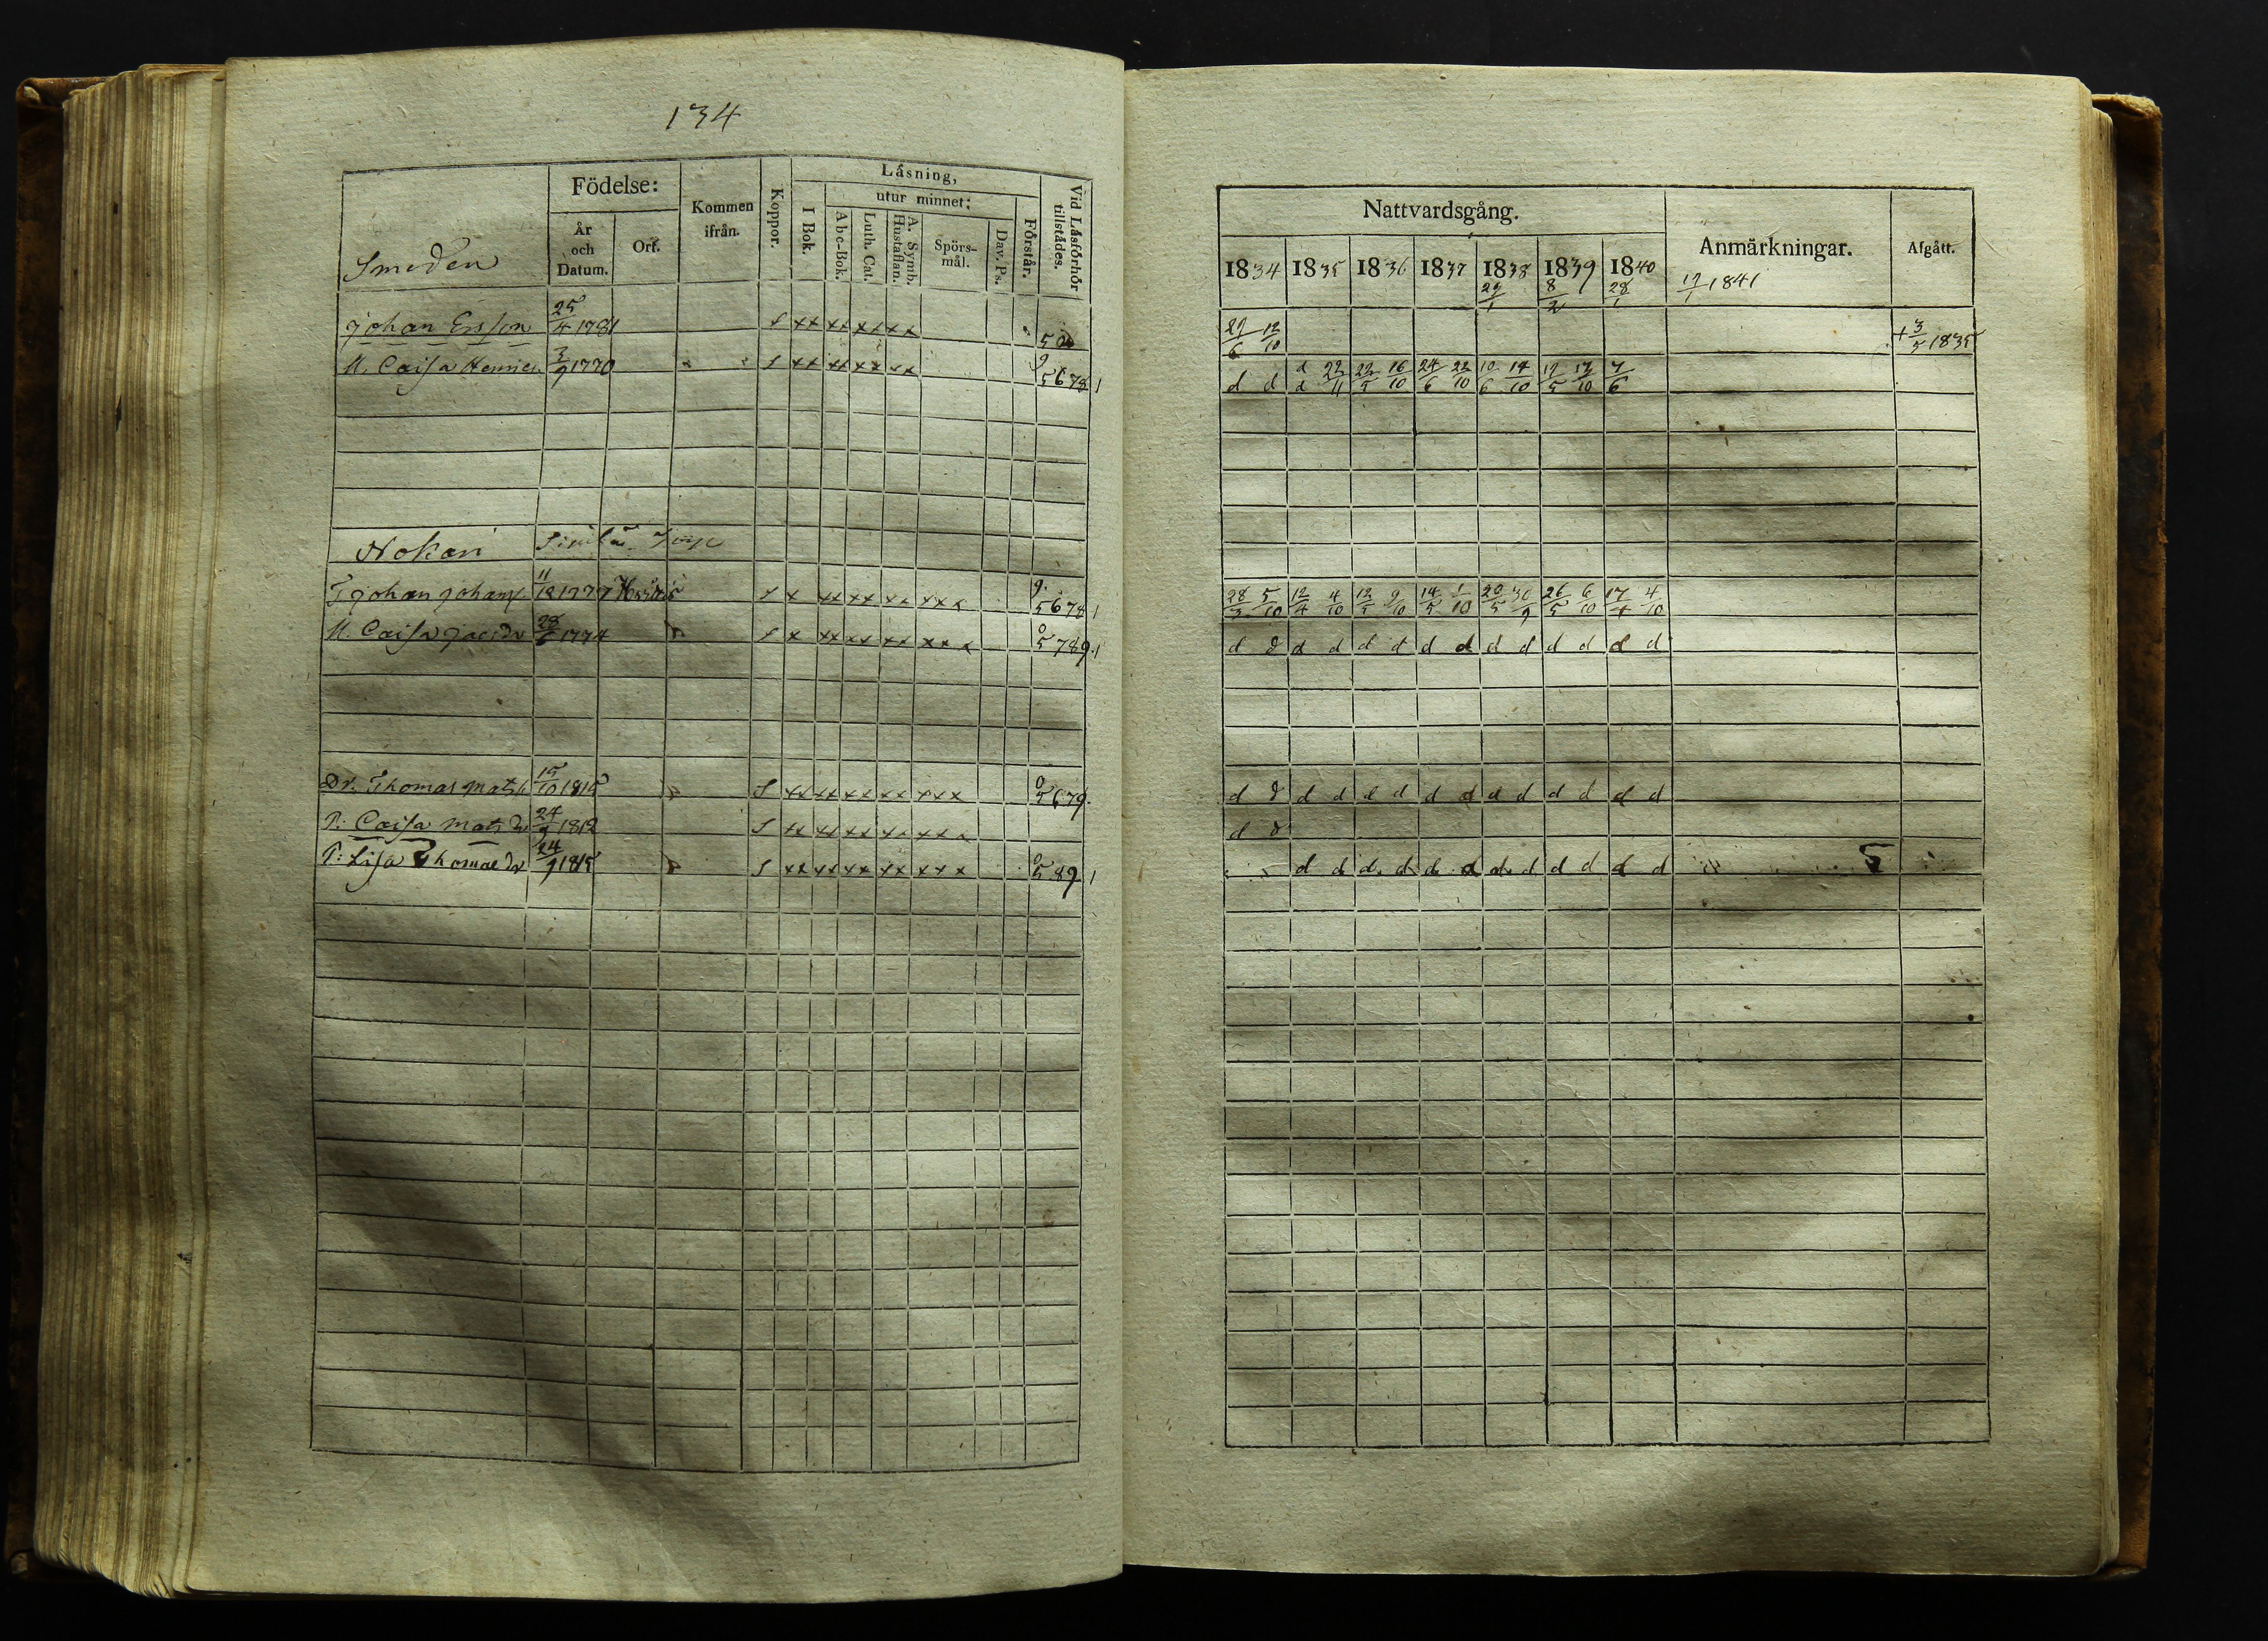 134
Smeden
Födelse:
År och Datum.
Ort.
Kommen ifrån.
Koppor.
Läsning,
I Bok.
utur minnet:
Abc-Bok.
Luth. Cat.
A. Symb. Hustaflan.
Spörs-mål.
Dav. Ps.
Förstår.
Vid Läsförhör tillstådes.
Johan Ersson 25/4 1781 s xx xx xx xx 5
H. Caisa Henricr. 3/9 1770 s xx xx xx xx 5678 1
Nokari
T Johan Johans 11/12 1777 s x xx xx xx xxx 5678 1
H. Caisa Jacdr 1774 s x xx xx xx xxx 5789. 1
Dr. Thomas Mats 15/10 1815 s xx xx xx xx xxx 5679.
P: Caisa Mats dr 24/9 1812 s xx xx xx xx xxx
P: Lisa Thomae dr 24/9 1815 s xx xx xx xx xxx 589 1
Nattvardsgång.
Anmärkningar.
Afgått.
1834 1835 1836 1837 1838 1839 1840
29/1 8/2 28/1 17/1 1841
27/6 12/10 + 3/5 1835
d d d d 22/11 22/5 16/10 24/6 22/10 10/6 14/10 12/5 13/10 7/6
28/3 5/10 12/4 4/10 12/5 9/10 14/5 1/10 20/5 30/9 26/5 6/10 17/4 4/10
d d d d d d d d d d d d d d
d d d d d d d d d d d d d d
d d
d d d d d d d d d d d d 5